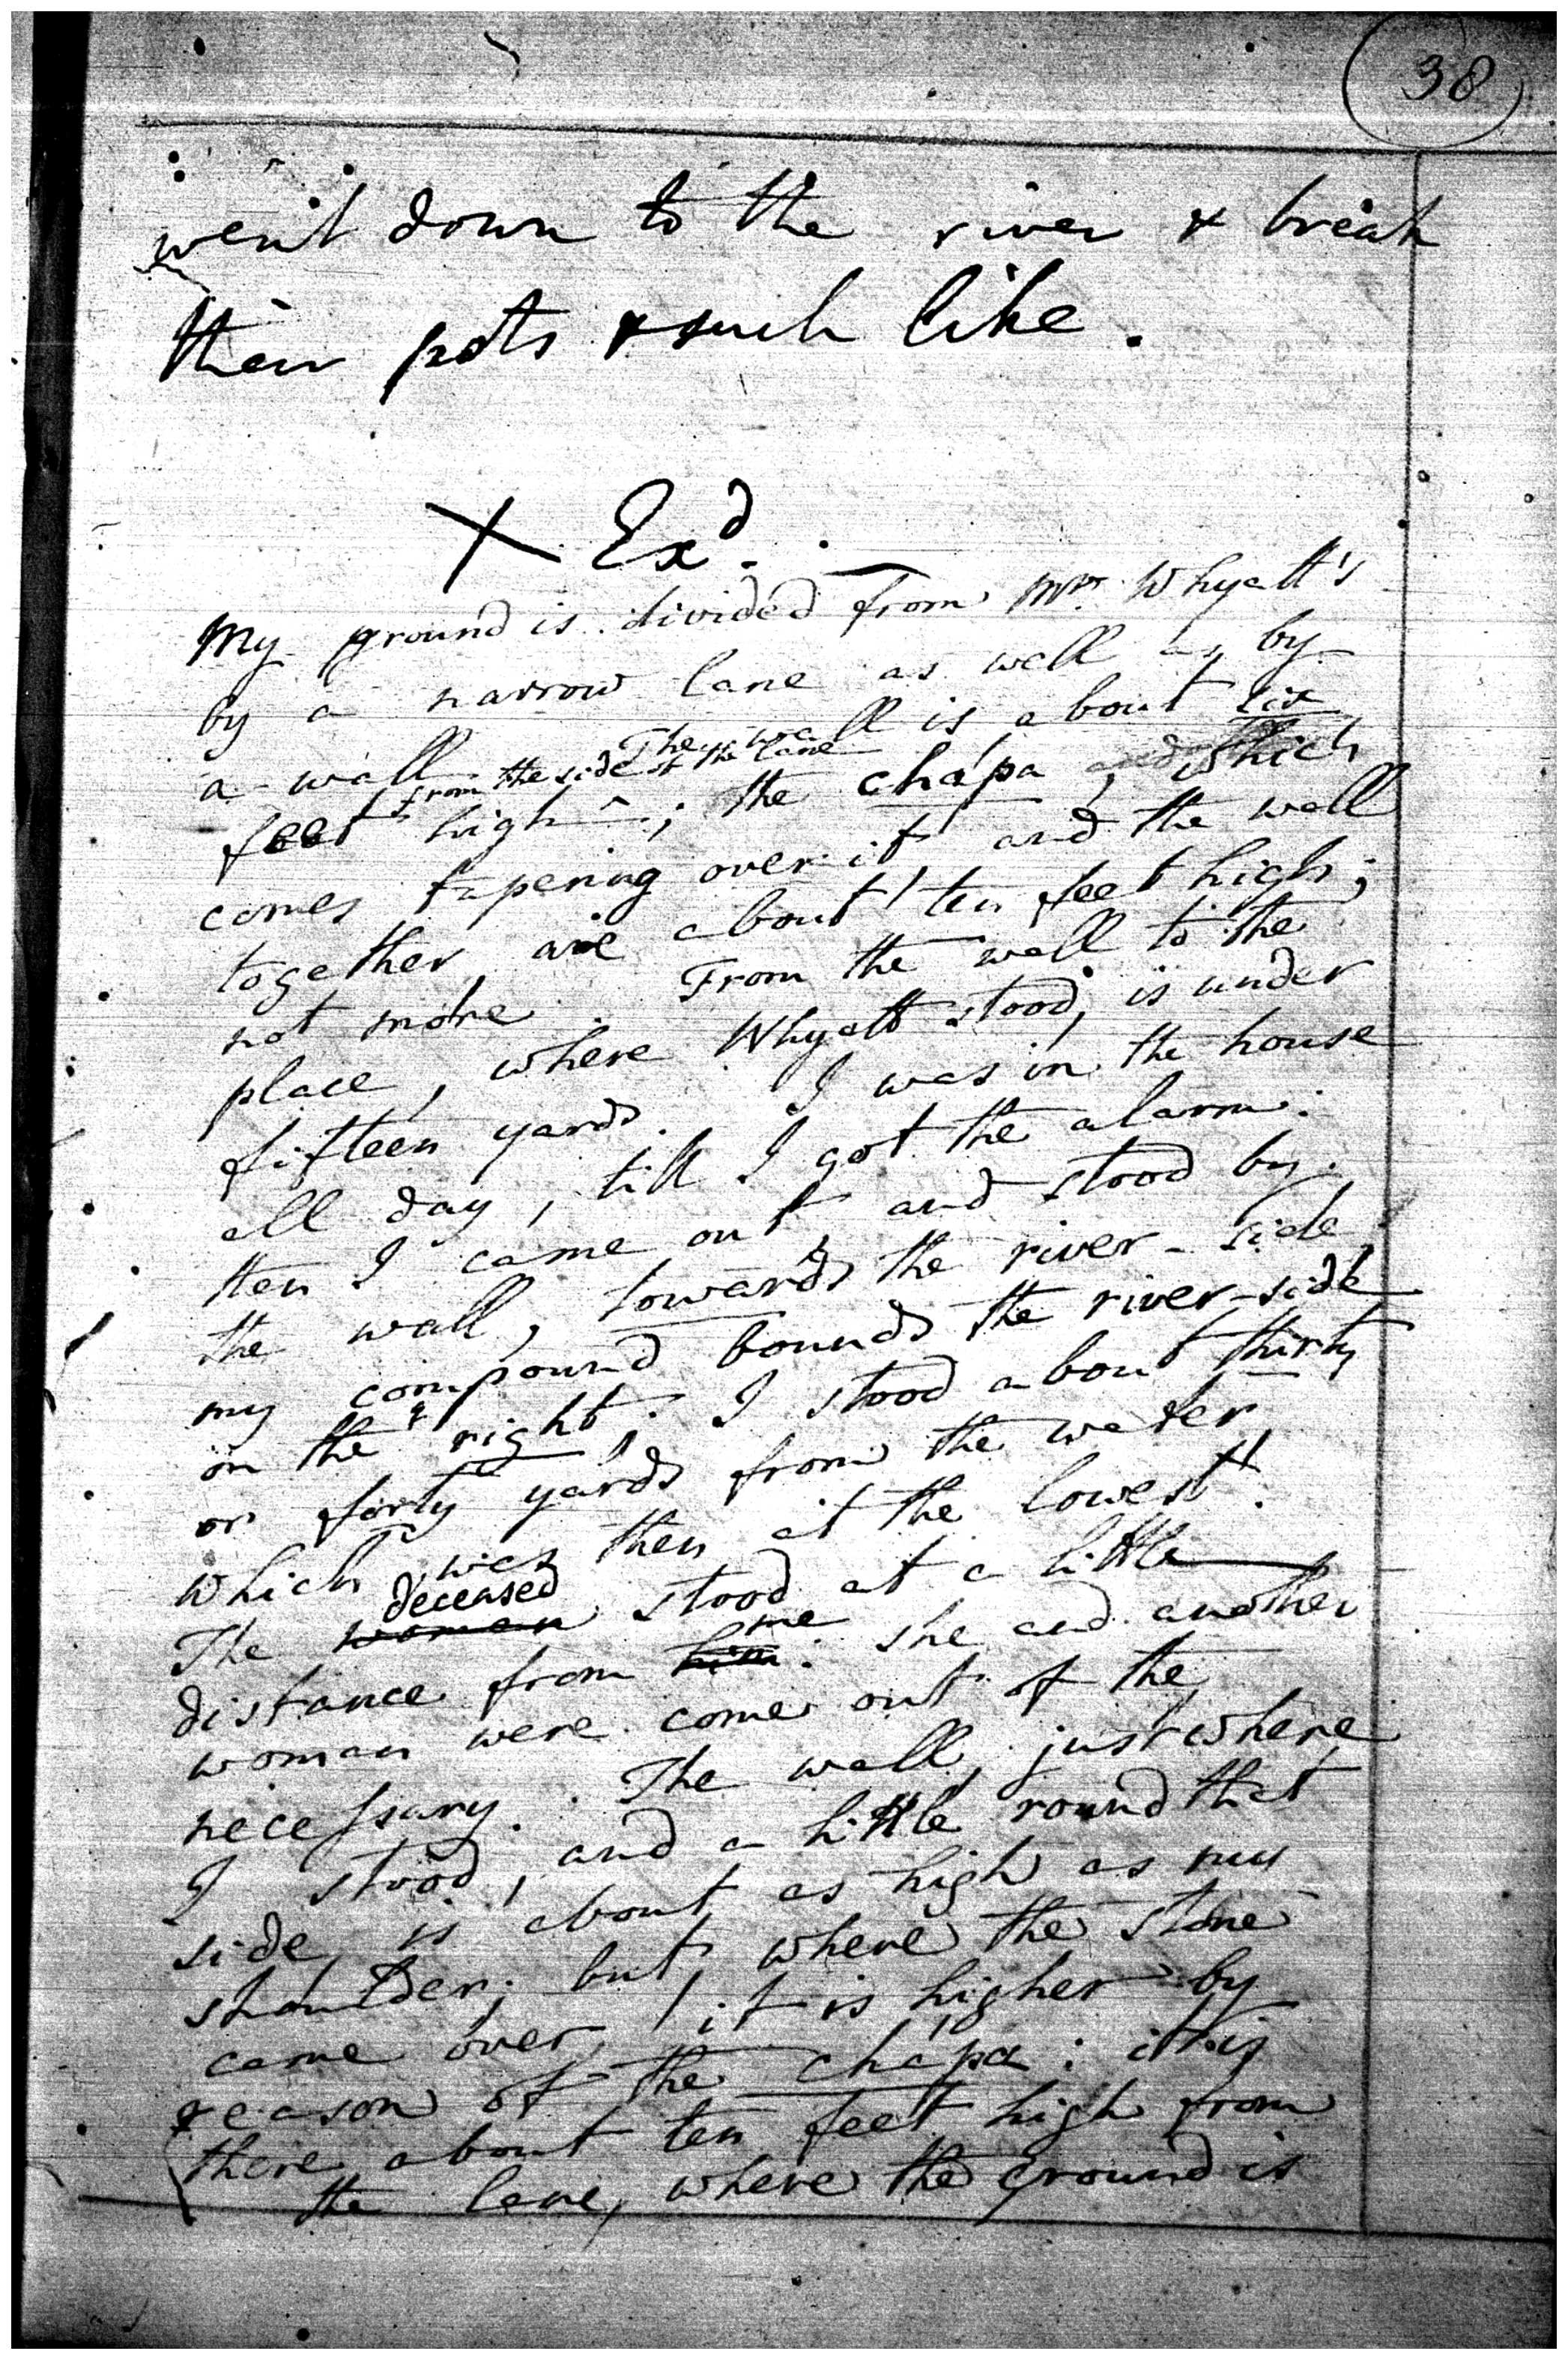 38
went down to the river & break
their pots & such like.
X Exd.
My ground is divided from Mr. Whyatt's
by a narrow lane as well as by
a wall. The wall is about six
from the side of the lane
feet high ^; the chápa, which
comes tapering over it, and the wall
together, are about ten feet high;
not more. From the wall to the
place, where Whyatt stood, is under
fifteen yards. I was in the house
all day, till I got the alarm:
then I came out, and stood by
the wall, towards the river-side.
my compound bounds the river-side
on the right. I stood about thirty
or forty yards from the water
which was then at the lowest.
deceased
The woman stood at a little
me
distance from him. she and another
woman were come out of the
necessary. The wall, just where
I stood, and a little round that
side, is about as high as my
shoulder; but, where the stone
came over, it is higher by
reason of the chápa: it is
there about ten feet high from
the lane, where the ground is